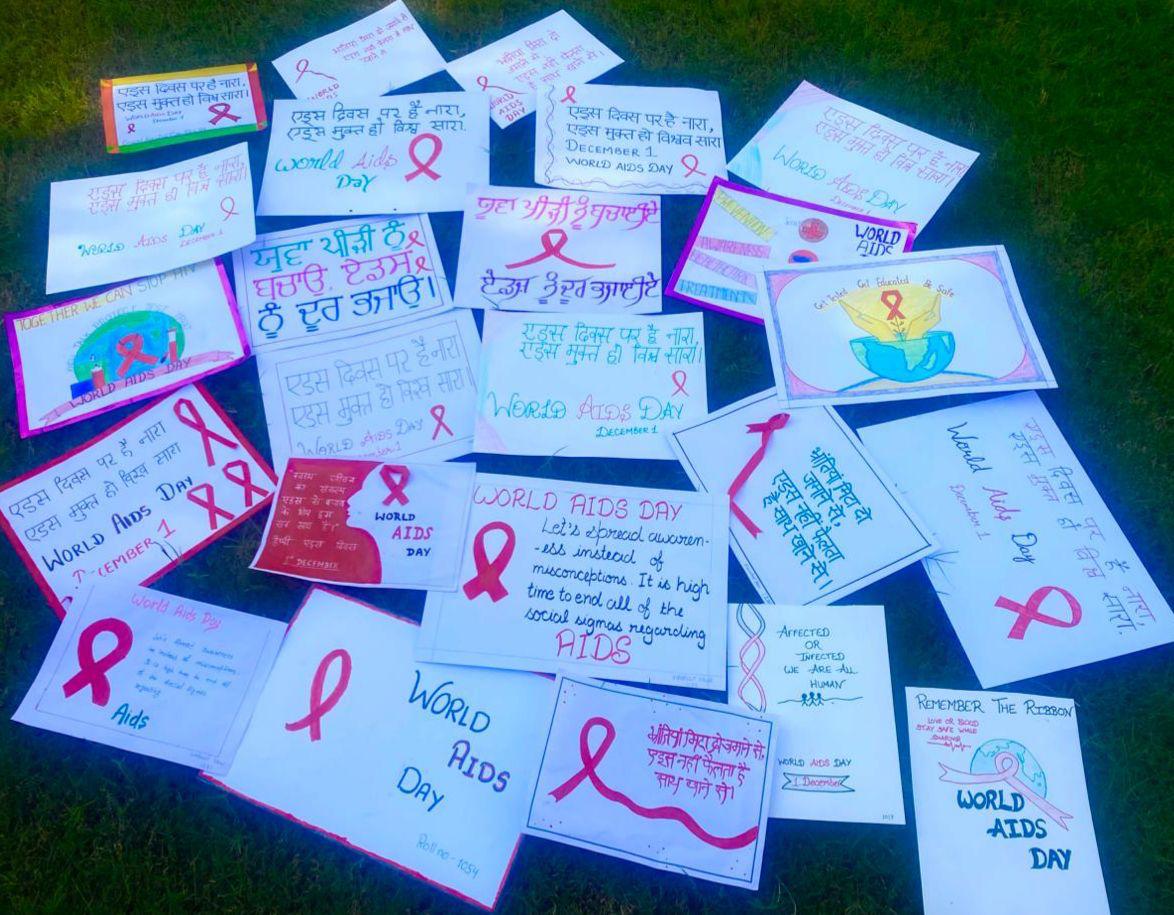 एड्स दिवस पर है नारा,
एड्स मुक्त हो विश्व सारा।
WORLD AIDS DAY
December 1
WORLD
AIDS
DAY
एड्स दिवस पर है नारा,
एड्स मुक्त हो विश्व सारा.
World Aids
Day
एड्स दिवस पर है नारा,
एड्स मुक्त हो विश्वव सारा
DECEMBER 1
WORLD AIDS DAY
एड्स दिवस पर है नारा,
एड्स मुक्त हो विश्व सारा।
WORLD AIDS DAY
DECEMBER 1
एड्स दिवस पर है नारा,
एड्स मुक्त हो विश्व सारा।
WORLD AIDS DAY
DECEMBER 1
ਯੁਵਾ ਪੀੜੀ ਨੂੰ
ਬਚਾਓ, ਏਡਸ
ਨੂੰ ਦੂਰ ਭਜਾਉ।
ਯੁਵਾ ਪੀੜੀ ਨੂੰ ਬਚਾਈਏ
ਏਡਜ਼ ਨੂੰ ਦੂਰ ਭਜਾਈਏ
PREVENTION
AWARENESS
TREATMENT
WORLD
AIDS
Get Tested Get Educated Be Safe
TOGETHER WE CAN STOP HIV
WORLD AIDS DAY
एडस दिवस पर है नारा
एडस मुक्त हो विश्व सारा।
WORLD AIDS DAY
DECEMBER 1
एड्स दिवस पर है नारा,
एड्स मुक्त हो विश्व सारा।
WORLD AIDS DAY
DECEMBER 1
एडस दिवस पर है नारा
एडस मुक्त हो विश्व सारा
WORLD AIDS DAY
DECEMBER 1
WORLD
AIDS
DAY
1st DECEMBER
WORLD AIDS DAY
Let's spread awaren-
-ess instead of
misconceptions. It is high
time to end all of the
social sigmas regarding
AIDS
भ्रांतियां मिटा दो
जमाने से,
एड्स नहीं फैलता
है साथ खाने से।
एड्स दिवस पर है नारा,
एड्स मुक्त हो विश्व सारा.
World Aids Day
December 1
World Aids Day
Aids
WORLD
AIDS
DAY
Roll no - 1054
भ्रांतियाँ मिटा दो जमाने से,
एड्स नहीं फैलता है
साथ खाने से।
AFFECTED
OR
INFECTED
WE ARE ALL
HUMAN
WORLD AIDS DAY
1 December
REMEMBER THE RIBBON
LOVE OR BLOOD
STAY SAFE WHILE
SHARING
WORLD
AIDS
DAY